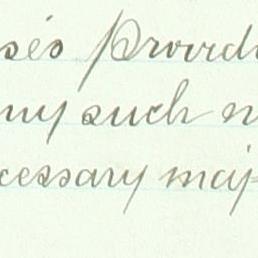 ses provid
ny such n
cessary maj